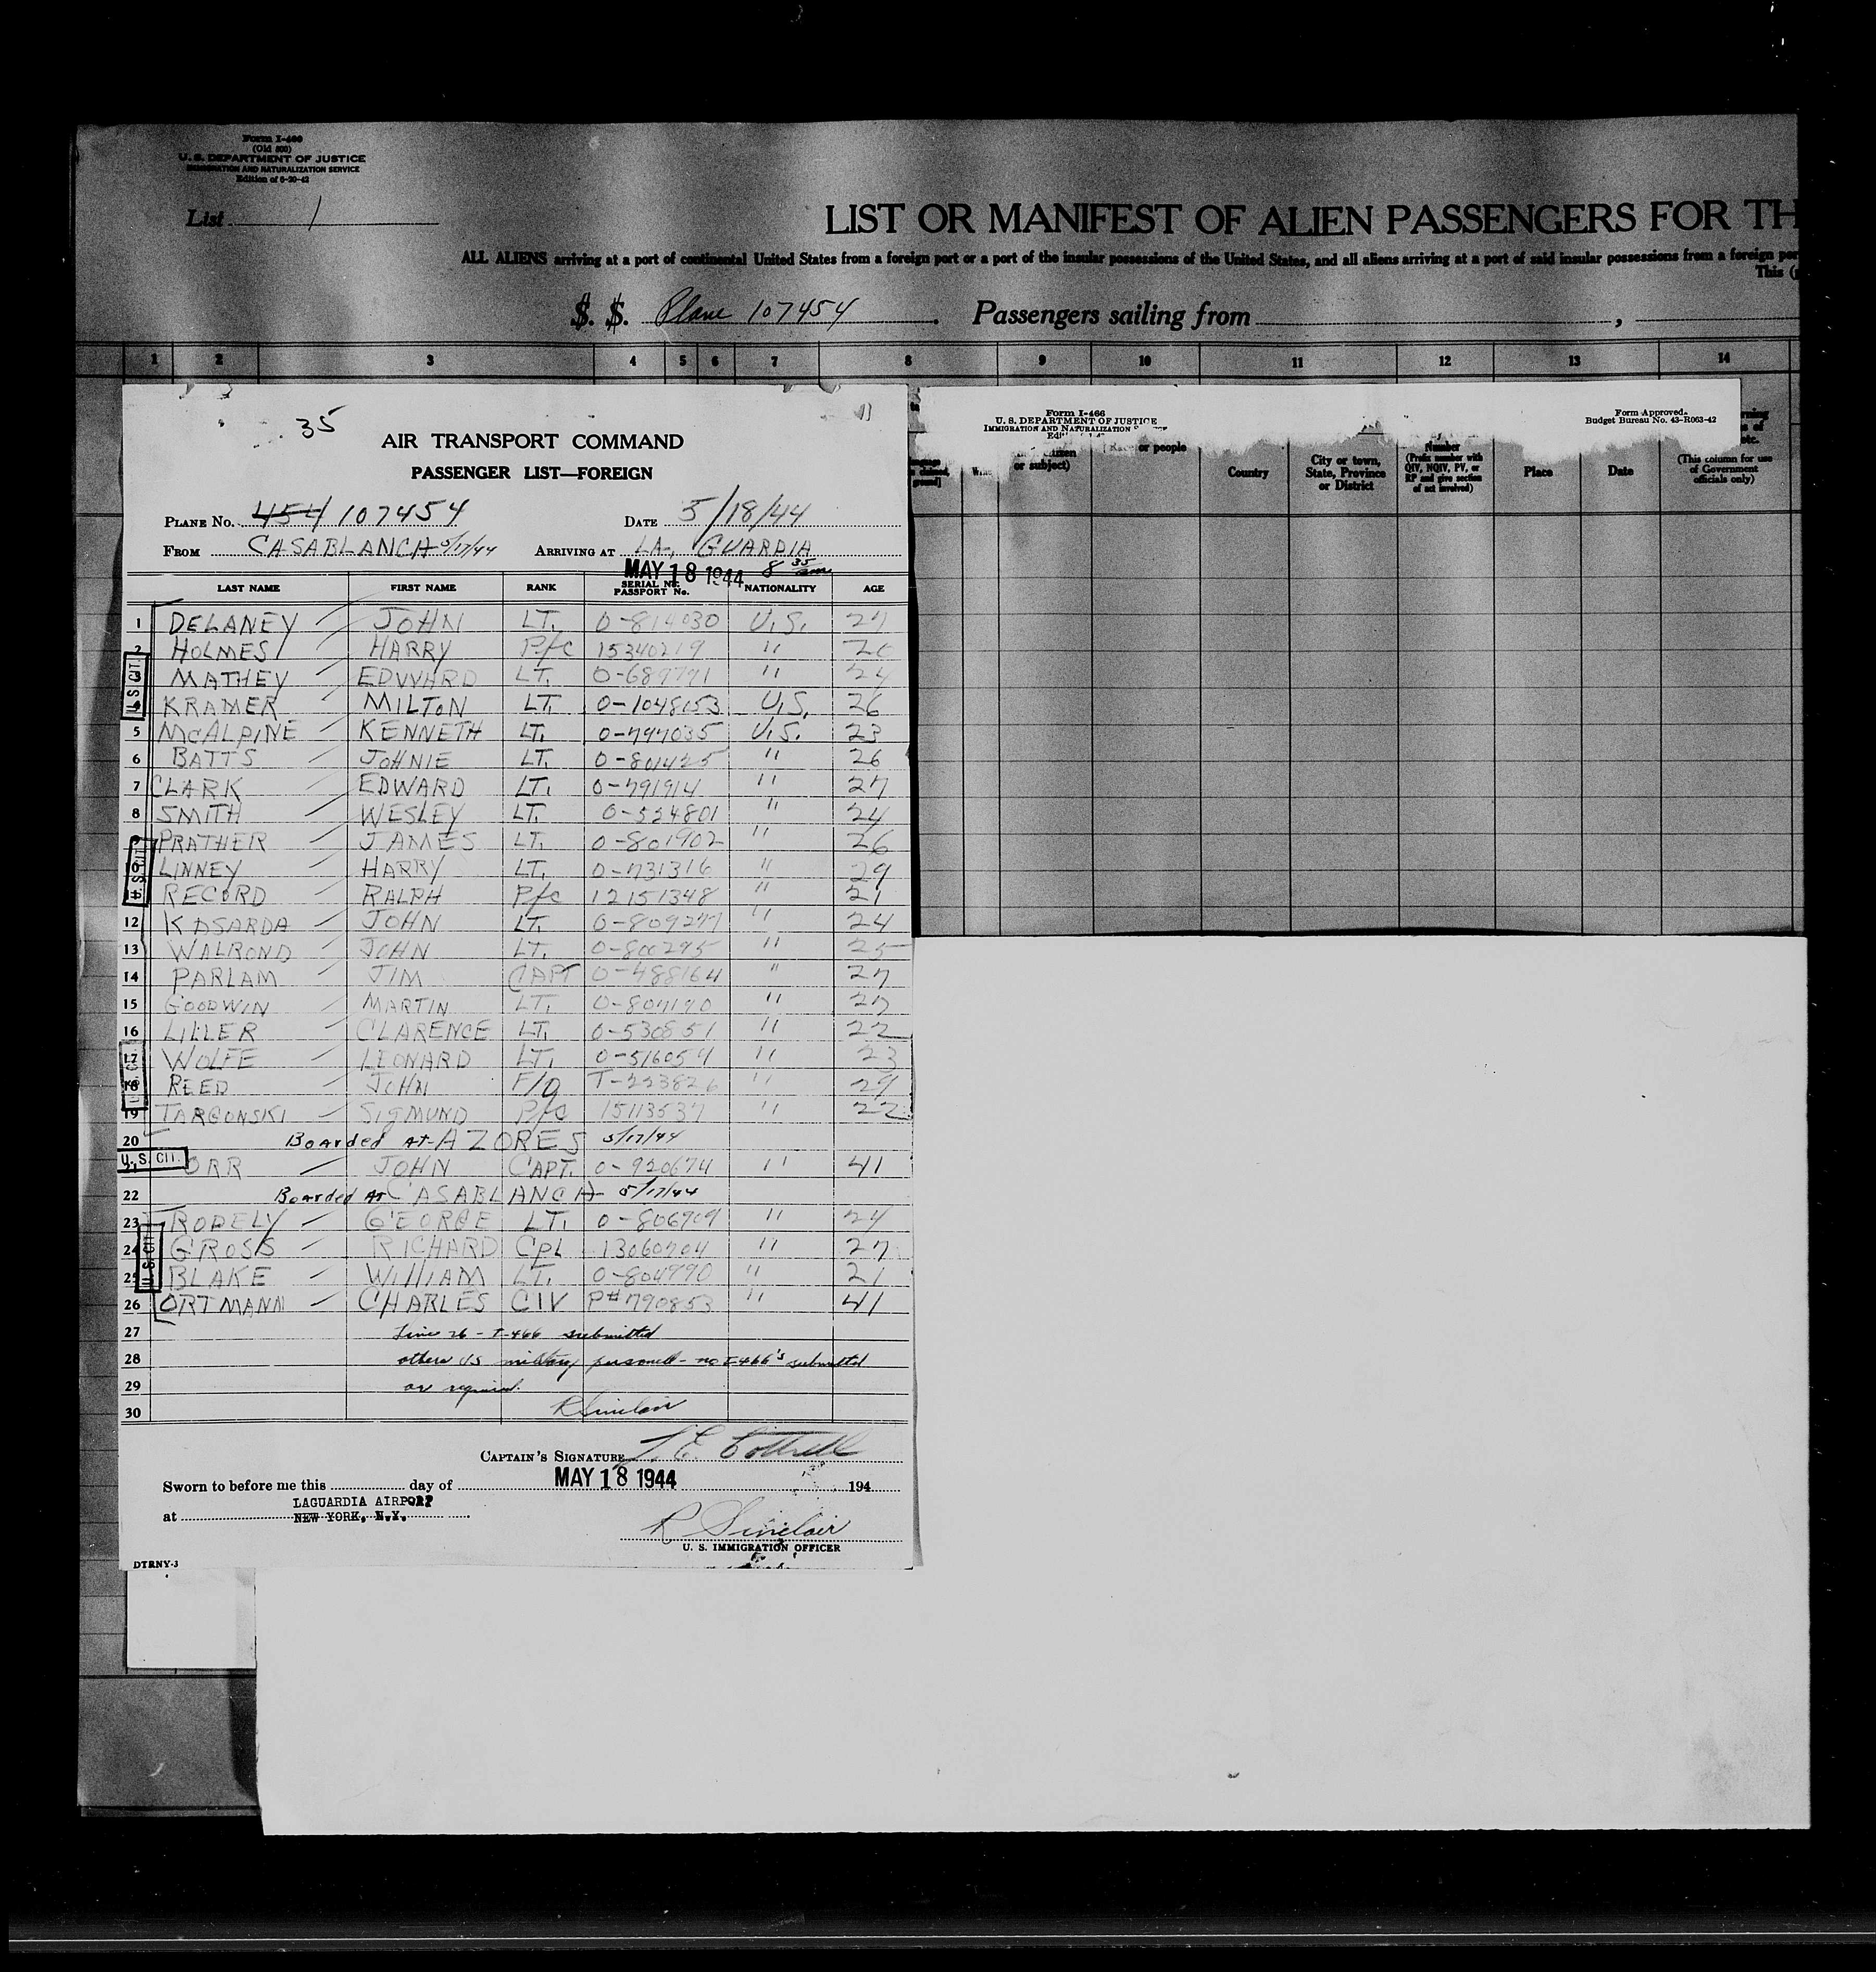 Form I-466
(Old 500)
U. S. DEPARTMENT OF JUSTICE
IMMIGRATION AND NATURALIZATION SERVICE
List 1
LIST OR MANIFEST OF ALIEN PASSENGERS FOR TH
ALL ALIENS arriving at a port of continental United States from a foreign port or a port of the insular possessions of the United States, and all aliens arriving at a port of said insular possessions from a foreign por
This (
S. S. Plane 107454. Passengers sailing from ,
1 2 3 4 5 6 7 8 9 10 11 12 13 14
Form I-466
U. S. DEPARTMENT OF JUSTICE
IMMIGRATION AND NATURALIZATION
Form Approved.
Budget Bureau No. 43-R063-42
or subject)
or people
Country
City or town, State, Province or District
Number (Prefix number with QIV, NQIV, PV, or RP and give section of act involved)
Place
Date
(This column for use of Government officials only)
35
AIR TRANSPORT COMMAND
PASSENGER LIST—FOREIGN
PLANE NO. 454 107454 DATE 5/18/44
FROM CASABLANCA 5/17/44 ARRIVING AT LA GUARDIA
MAY 18 1944 8 35 am
LAST NAME FIRST NAME RANK SERIAL NO. PASSPORT NO. NATIONALITY AGE
1 DELANEY JOHN LT. 0-814030 U.S.
2 HOLMES HARRY Pfc 15340219 "
3 MATHEY EDWARD LT. "  24
4 KRAMER MILTON LT. 0-1048153 U.S. 26
5 McALPINE KENNETH LT. 0-797035 U.S. 23
6 BATTS JOHNIE LT. 0-801425 " 26
7 CLARK EDWARD LT. 0-791914 " 27
8 SMITH WESLEY LT. 0-534801 " 24
9 PRATHER JAMES LT. 0-801902 " 26
10 LINNEY HARRY LT. 0-731316 " 29
11 RECORD RALPH Pfc 12151348 " 21
12 KASARDA JOHN LT. 0-809277 " 24
13 WALROND JOHN LT. 0-800295 " 25
14 PARLAM JIM CAPT 0-488164 " 27
15 GOODWIN MARTIN LT. " 27
16 LILLER CLARENCE LT. 0-530851 " 22
17 WOLFE LEONARD LT. 0-516059 " 23
18 REED JOHN F/O T-223826 " 29
19 TARGONSKI SIGMUND Pfc 15113537 " 22
20 Boarded At AZORES 5/17/44
U. S. CIT.
21 ORR JOHN CAPT. 0-920674 " 41
22 Boarded At CASABLANCA 5/17/44
23 RODELY GEORGE LT. 0-806909 " 24
24 GROSS RICHARD Cpl 13060704 " 27
25 BLAKE WILLIAM LT. 0-804790 " 21
26 ORTMANN CHARLES CIV P# 790853 " 41
U. S. CIT.
27 Line 26 - I-466 submitted
28 others US military personell - no I-466's submitted
29 or required.
30 R Sinclair
CAPTAIN'S SIGNATURE L. E. Cottrell
Sworn to before me this day of MAY 18 1944 194
at LAGUARDIA AIRPORT
NEW YORK, N.Y.
R Sinclair
U. S. IMMIGRATION OFFICER
DTRNY-3